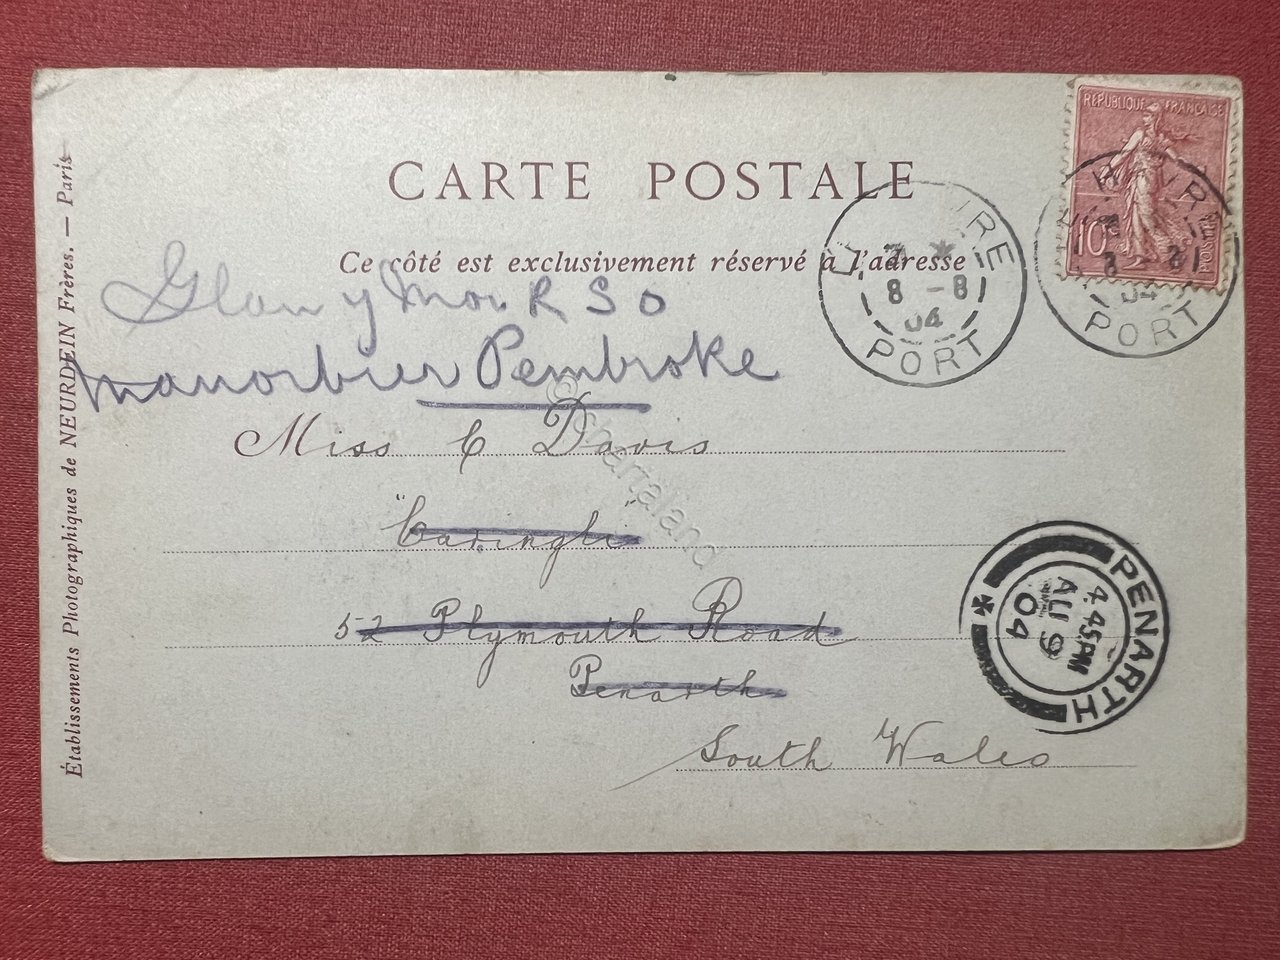 CARTE POSTALE
Ce côté est exclusivement réservé à l'adresse
Glan y Mor R S O
Manorbier Pembroke
Miss C Davis
52 Plymouth Road
Penarth
South Wales
Établissements Photographiques de NEURDEIN Frères. — Paris
RÉPUBLIQUE FRANÇAISE
10
POSTES
LE HAVRE
8 - 8
04
PORT
LE HAVRE
04
PORT
PENARTH
4.45PM
AU 9
04
© chartaland